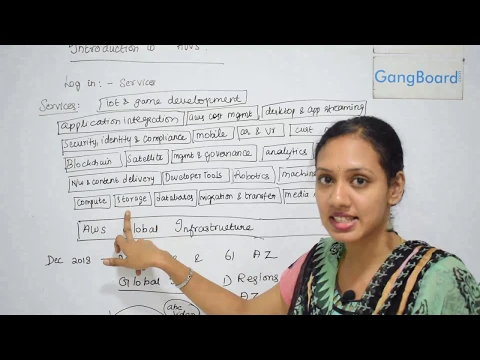 Introduction to AWS.
GangBoard.com
Log in:- Services
Services: IoT & game development
Application Integration aws cost mgmt desktop & app streaming
Security, identity & Compliance mobile AR & VR cust
Blockchain Satellite mgmt & governance analytics
N/w & content delivery Developer Tools Robotics machine
Compute storage databases migration & transfer media
AWS Global Infrastructure
Dec 2018 & 61 AZ
Global Regions
AZ